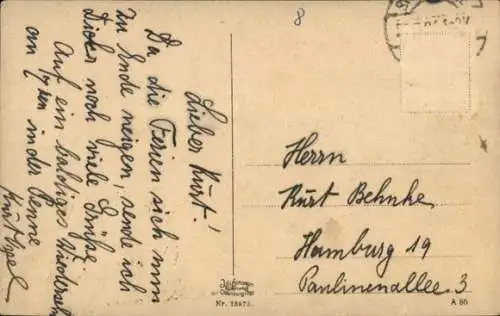 8
Lieber Kurt!
Da die Ferien sich nun
zu Ende neigen, sende ich
Dir noch viele Grüße.
Auf ein baldiges Wiedersehn
an in der Penne
Kurt
Herrn
Kurt Behnke
Hamburg 19
Paulinenallee 3
Nr.
A 86